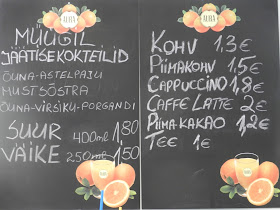 AURA
MÜÜGIL
JÄÄTISEKOKTEILID
ÕUNA-ASTELPAJU
MUSTSÕSTRA
ÕUNA-VIRSIKU-PORGANDI
SUUR 400ml 1,80
VÄIKE 250ml 1,50
AURA
KOHV 1,3€
PIIMAKOHV 1,5€
CAPPUCCINO 1,8€
CAFFE LATTE 2€
PIIMA-KAKAO 1,2€
TEE 1€